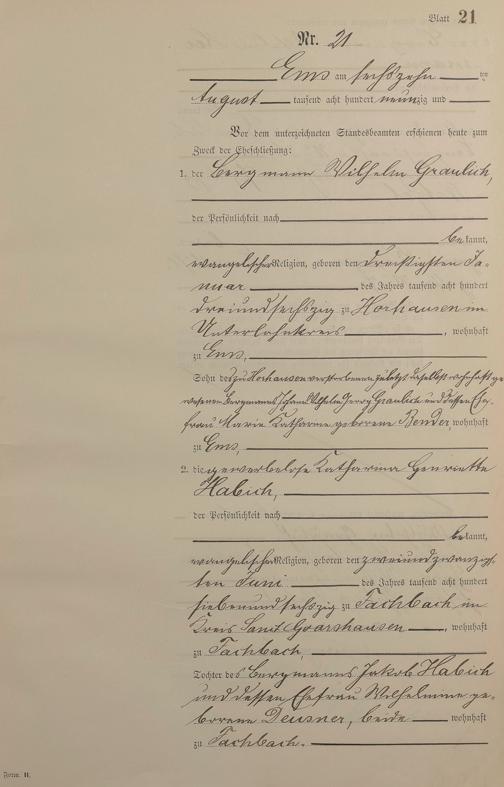 Blatt 21
Nr. 21
Ems am sechszehn ten
August tausend acht hundert neunzig und
Vor dem unterzeichneten Standesbeamten erschienen heute zum
Zweck der Eheschließung:
1. der Bergmann Wilhelm Graulich,
der Persönlichkeit nach
bekannt,
evangelischer Religion, geboren den dreißigsten Ja-
nuar des Jahres tausend acht hundert
dreiundsechszig zu Horhausen im
Unterlahnkreis, wohnhaft
zu Ems,
Sohn des zu Horhausen verstorbenen zuletzt daselbst wohnhaft ge-
wesenen Bergmanns Johann Wilhelm Graulich und dessen Ehe-
frau Marie Katharine geborene Bender, wohnhaft
zu Ems,
2. die gewerbelose Katharina Henriette
Habich,
der Persönlichkeit nach
bekannt,
evangelischer Religion, geboren den zweiundzwanzigs-
ten Juni des Jahres tausend acht hundert
siebenundsechszig zu Fachbach im
Kreis Sanct Goarshausen, wohnhaft
zu Fachbach,
Tochter des Bergmanns Jakob Habich
und dessen Ehefrau Wilhelmine ge-
borene Deusner, beide wohnhaft
zu Fachbach.
Form. II.